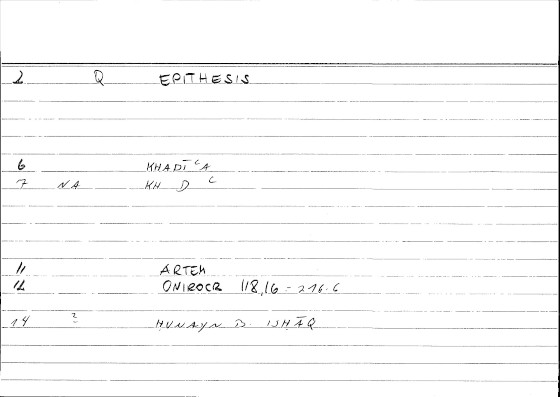 2 Q EPITHESIS
6 KHADĪʿA
7 NA KH D ʿ
11 ARTEM
12 ONIROCR 118,16 = 216.6
14 ? ḤUNAYN B. ISḤĀQ